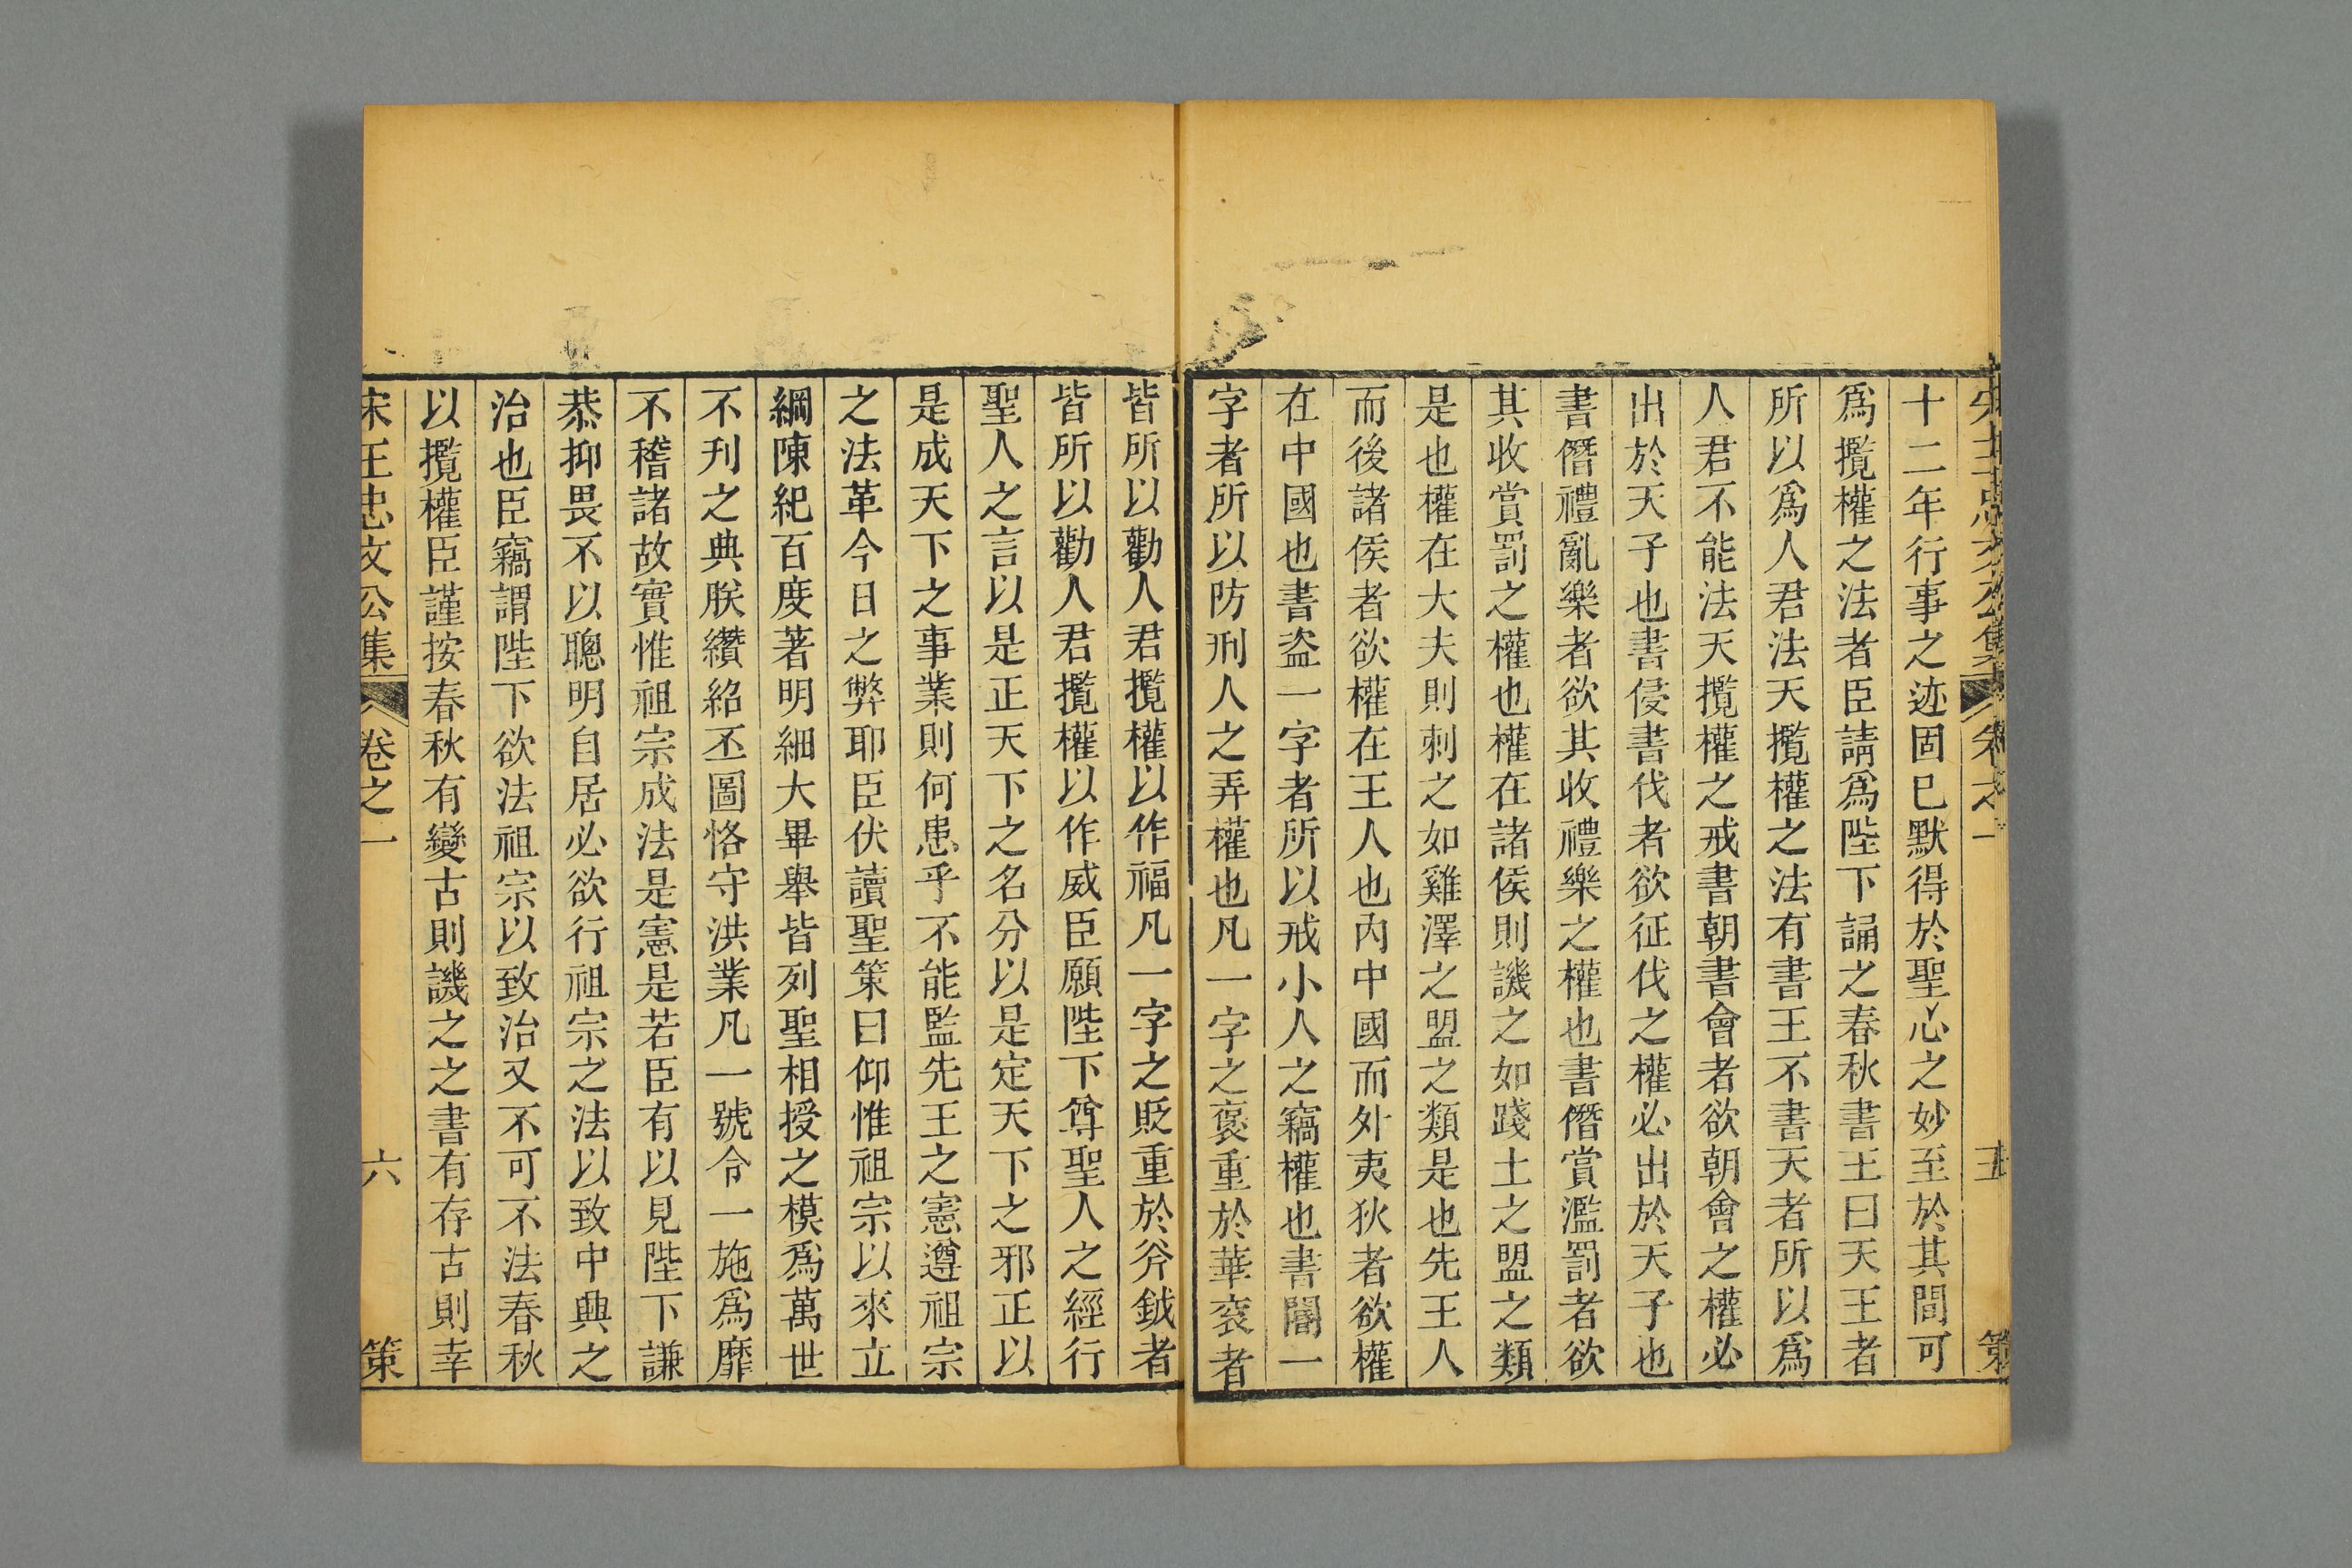 宋王忠文公集 卷之一 五 策
十二年行事之迹固已默得於聖心之妙至於其間可
爲攬權之法者臣請爲陛下誦之春秋書王曰天王者
所以爲人君法天攬權之法有書王不書天者所以爲
人君不能法天攬權之戒書朝書會者欲朝會之權必
出於天子也書侵書伐者欲征伐之權必出於天子也
書僭禮亂樂者欲其收禮樂之權也書僭賞濫罰者欲
其收賞罰之權也權在諸侯則譏之如踐土之盟之類
是也權在大夫則刺之如雞澤之盟之類是也先王人
而後諸侯者欲權在王人也內中國而外夷狄者欲權
在中國也書盜一字者所以戒小人之竊權也書閽一
字者所以防刑人之弄權也凡一字之褒重於華衮者
皆所以勸人君攬權以作福凡一字之貶重於斧鉞者
皆所以勸人君攬權以作威臣願陛下尊聖人之經行
聖人之言以是正天下之名分以是定天下之邪正以
是成天下之事業則何患乎不能監先王之憲遵祖宗
之法革今日之弊耶臣伏讀聖策曰仰惟祖宗以來立
綱陳紀百度著明細大畢舉皆列聖相授之模爲萬世
不刋之典朕纘紹丕圖恪守洪業凡一號令一施爲靡
不稽諸故實惟祖宗成法是憲是若臣有以見陛下謙
恭抑畏不以聰明自居必欲行祖宗之法以致中興之
治也臣竊謂陛下欲法祖宗以致治又不可不法春秋
以攬權臣謹按春秋有變古則譏之之書有存古則幸
宋王忠文公集 卷之一 六 策